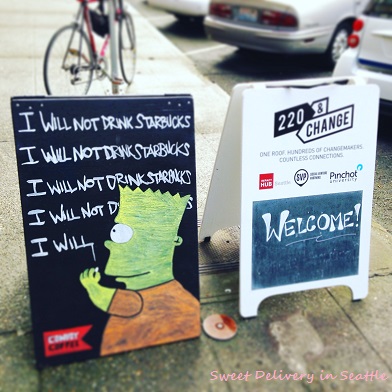 I WILL NOT DRINK STARBUCKS
I WILL NOT DRINK STARBUCKS
I WILL NOT DRINK STARBUCKS
I WILL NOT D S
I WILL
COMEDY
COFFEE
220 &
CHANGE
ONE ROOF. HUNDREDS OF CHANGEMAKERS.
COUNTLESS CONNECTIONS.
IMPACT
HUB
SVP
Pinchot
university
WELCOME!
Sweet Delivery in Seattle